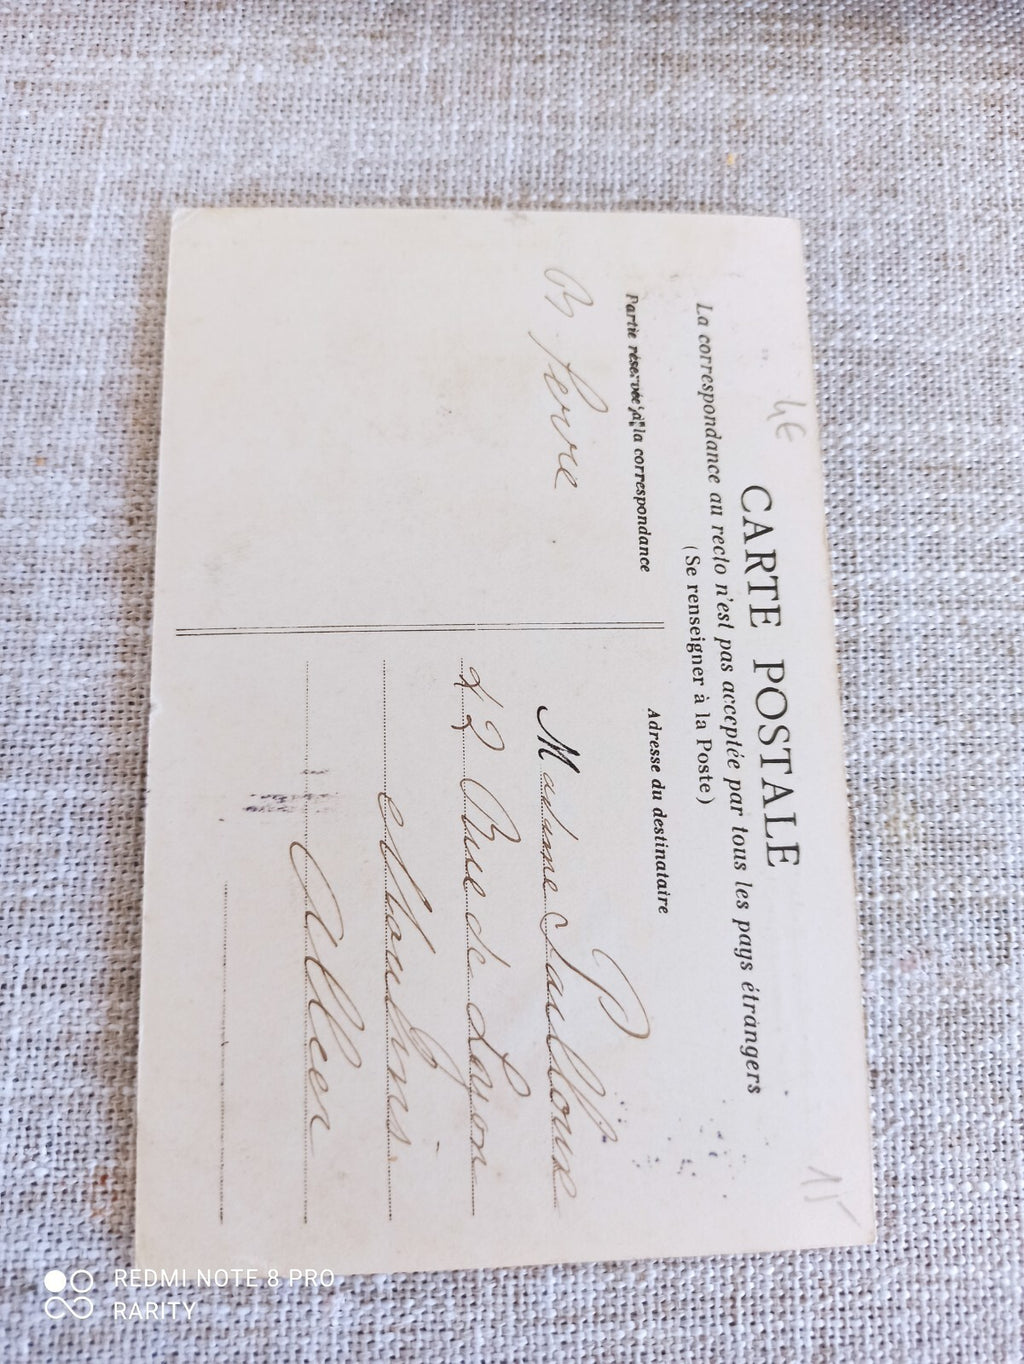 4€
15
CARTE POSTALE
La correspondance au recto n'est pas acceptée par tous les pays étrangers
(Se renseigner à la Poste)
Partie réservée à la correspondance
Adresse du destinataire
B. Serre
P
Madame Paulloux
42 Rue de Lyon
Moulins
Allier
REDMI NOTE 8 PRO
RARITY